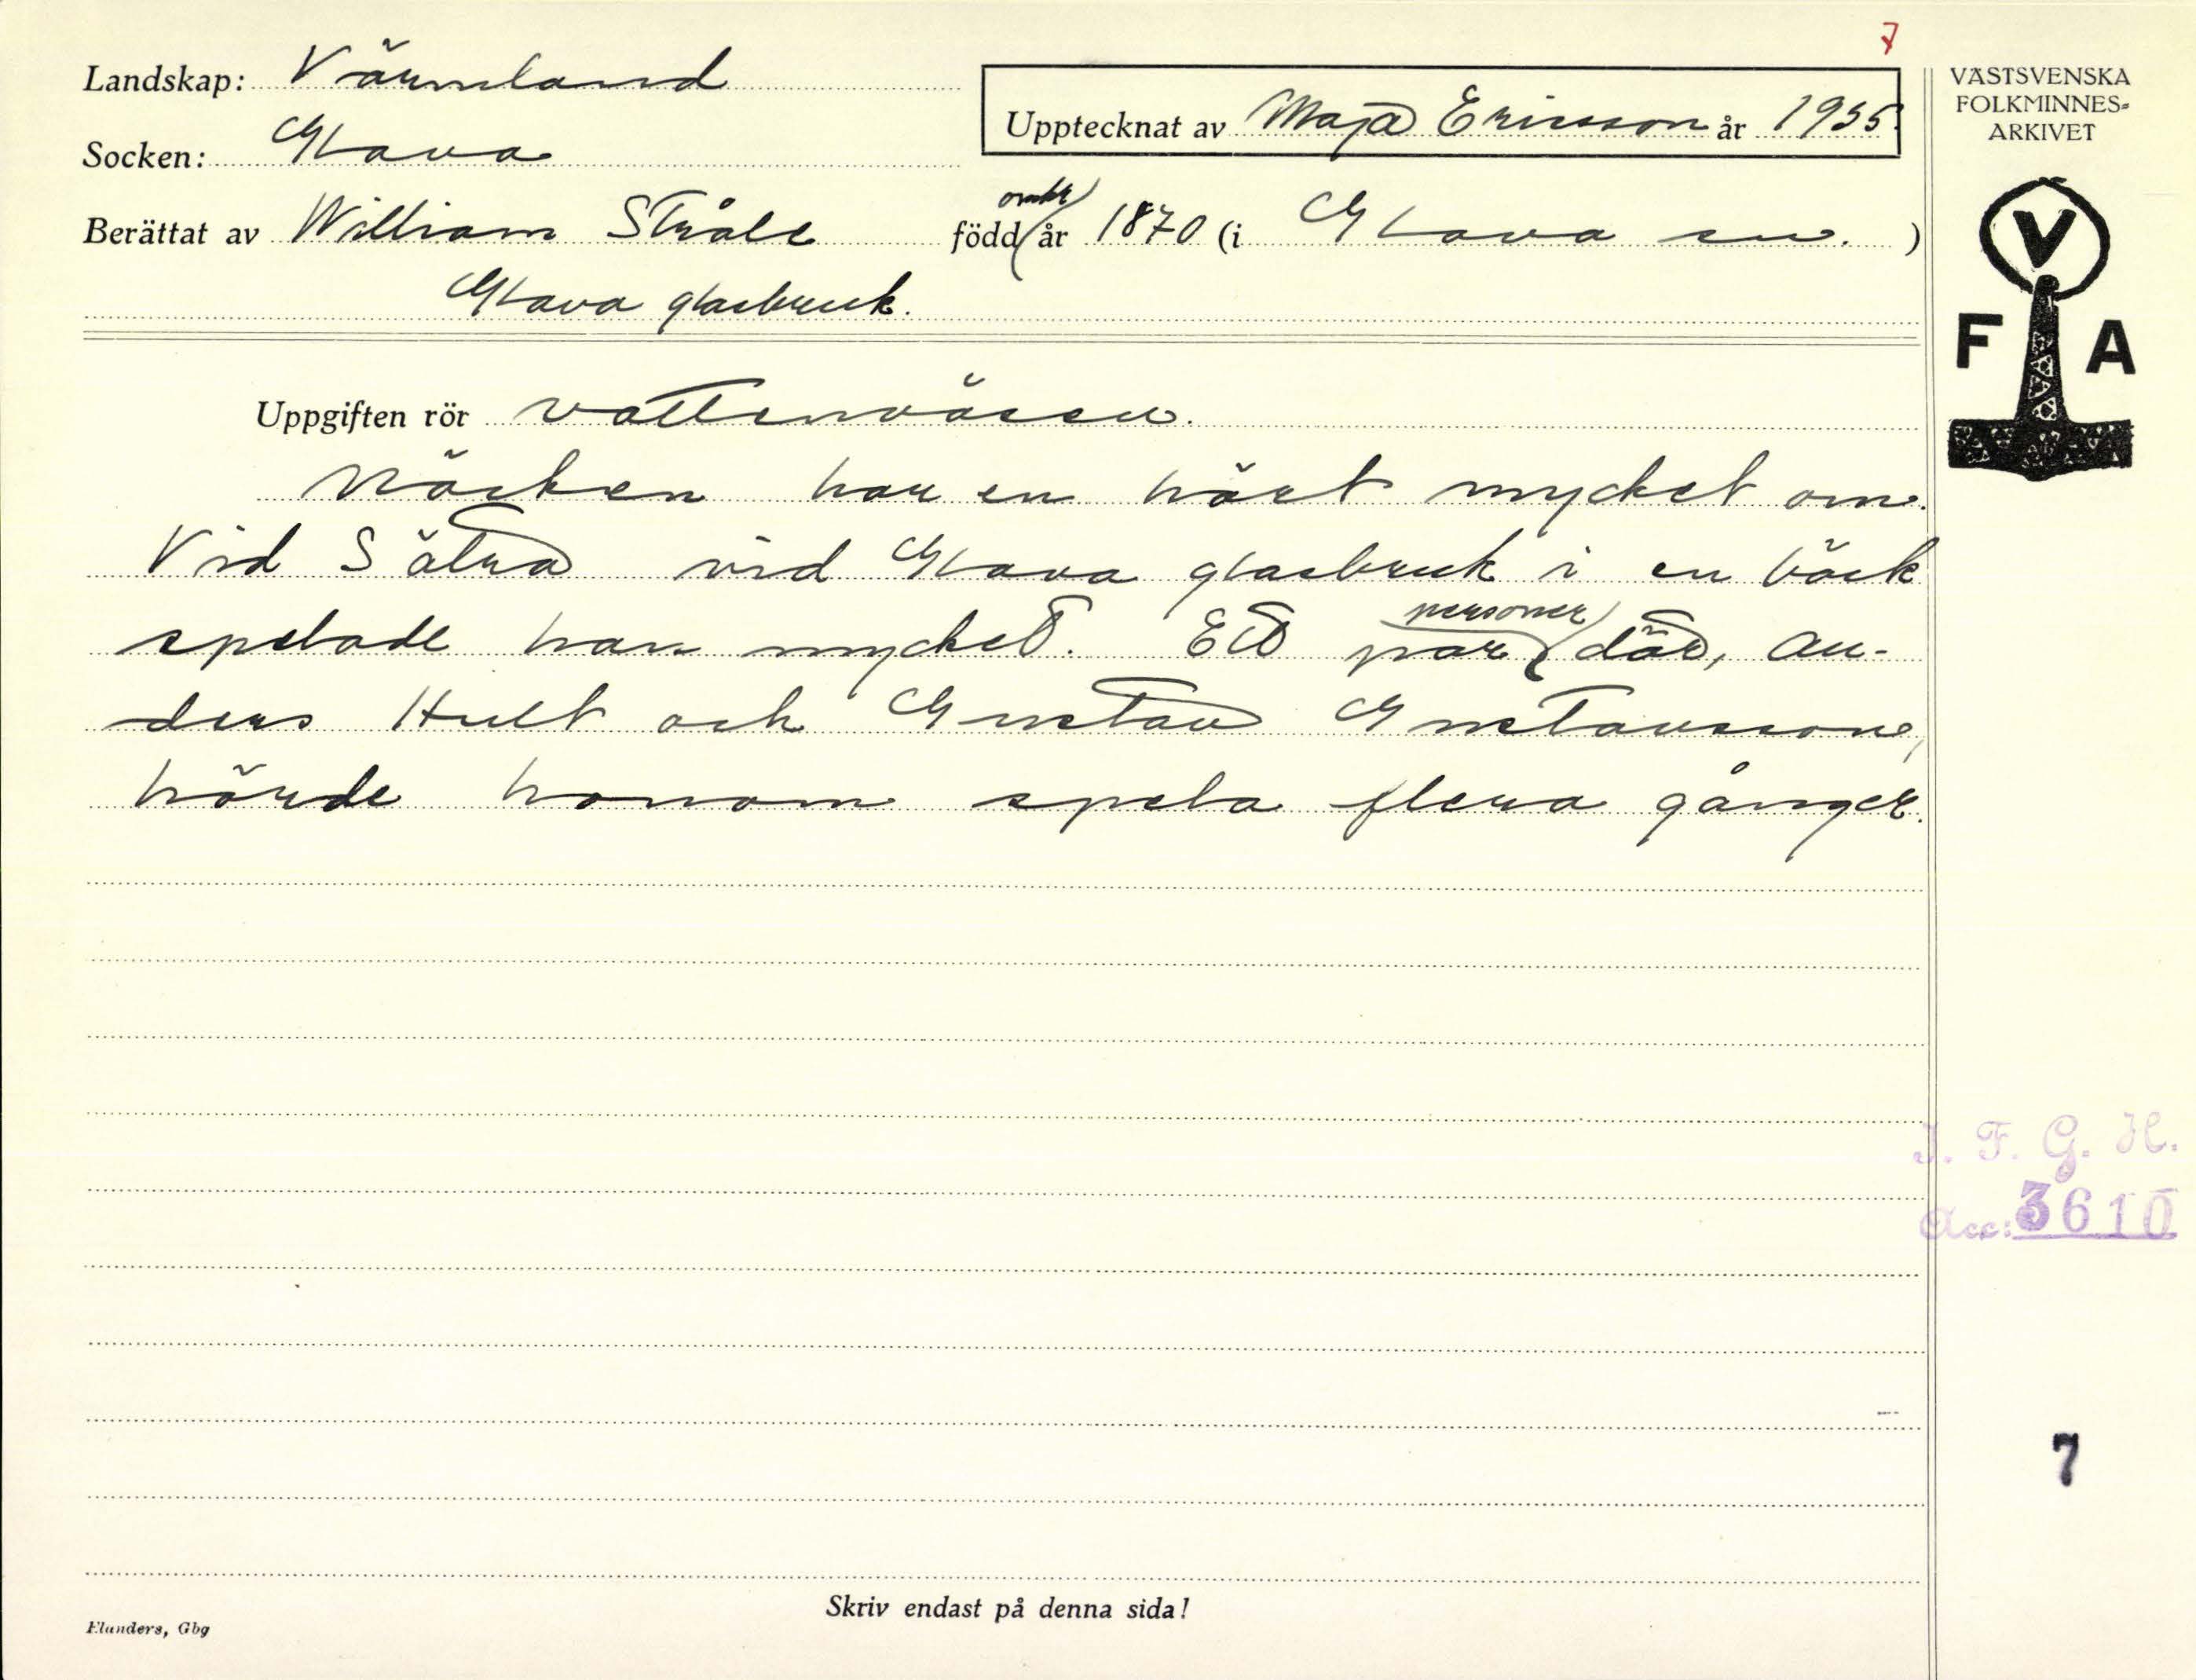 7
Landskap: Värmland
Upptecknat av Maja Ericsson år 1935.
VÄSTSVENSKA
FOLKMINNES-
ARKIVET
Socken: Glava
Berättat av William Stråle född omkr år 1870 (i Glava sn. )
Glava glasbruk.
V
F A
Uppgiften rör vattenväsen.
Näcken har en hört mycket om.
Vid Sätra vid Glava glasbruk i en bäck
spelade han mycket. Ett par personer där, An-
ders Hult och Gustav Gustavsson,
hörde honom spela flera gånger.
I. F. G. H.
Acc: 3610
7
Skriv endast på denna sida!
Elanders, Gbg